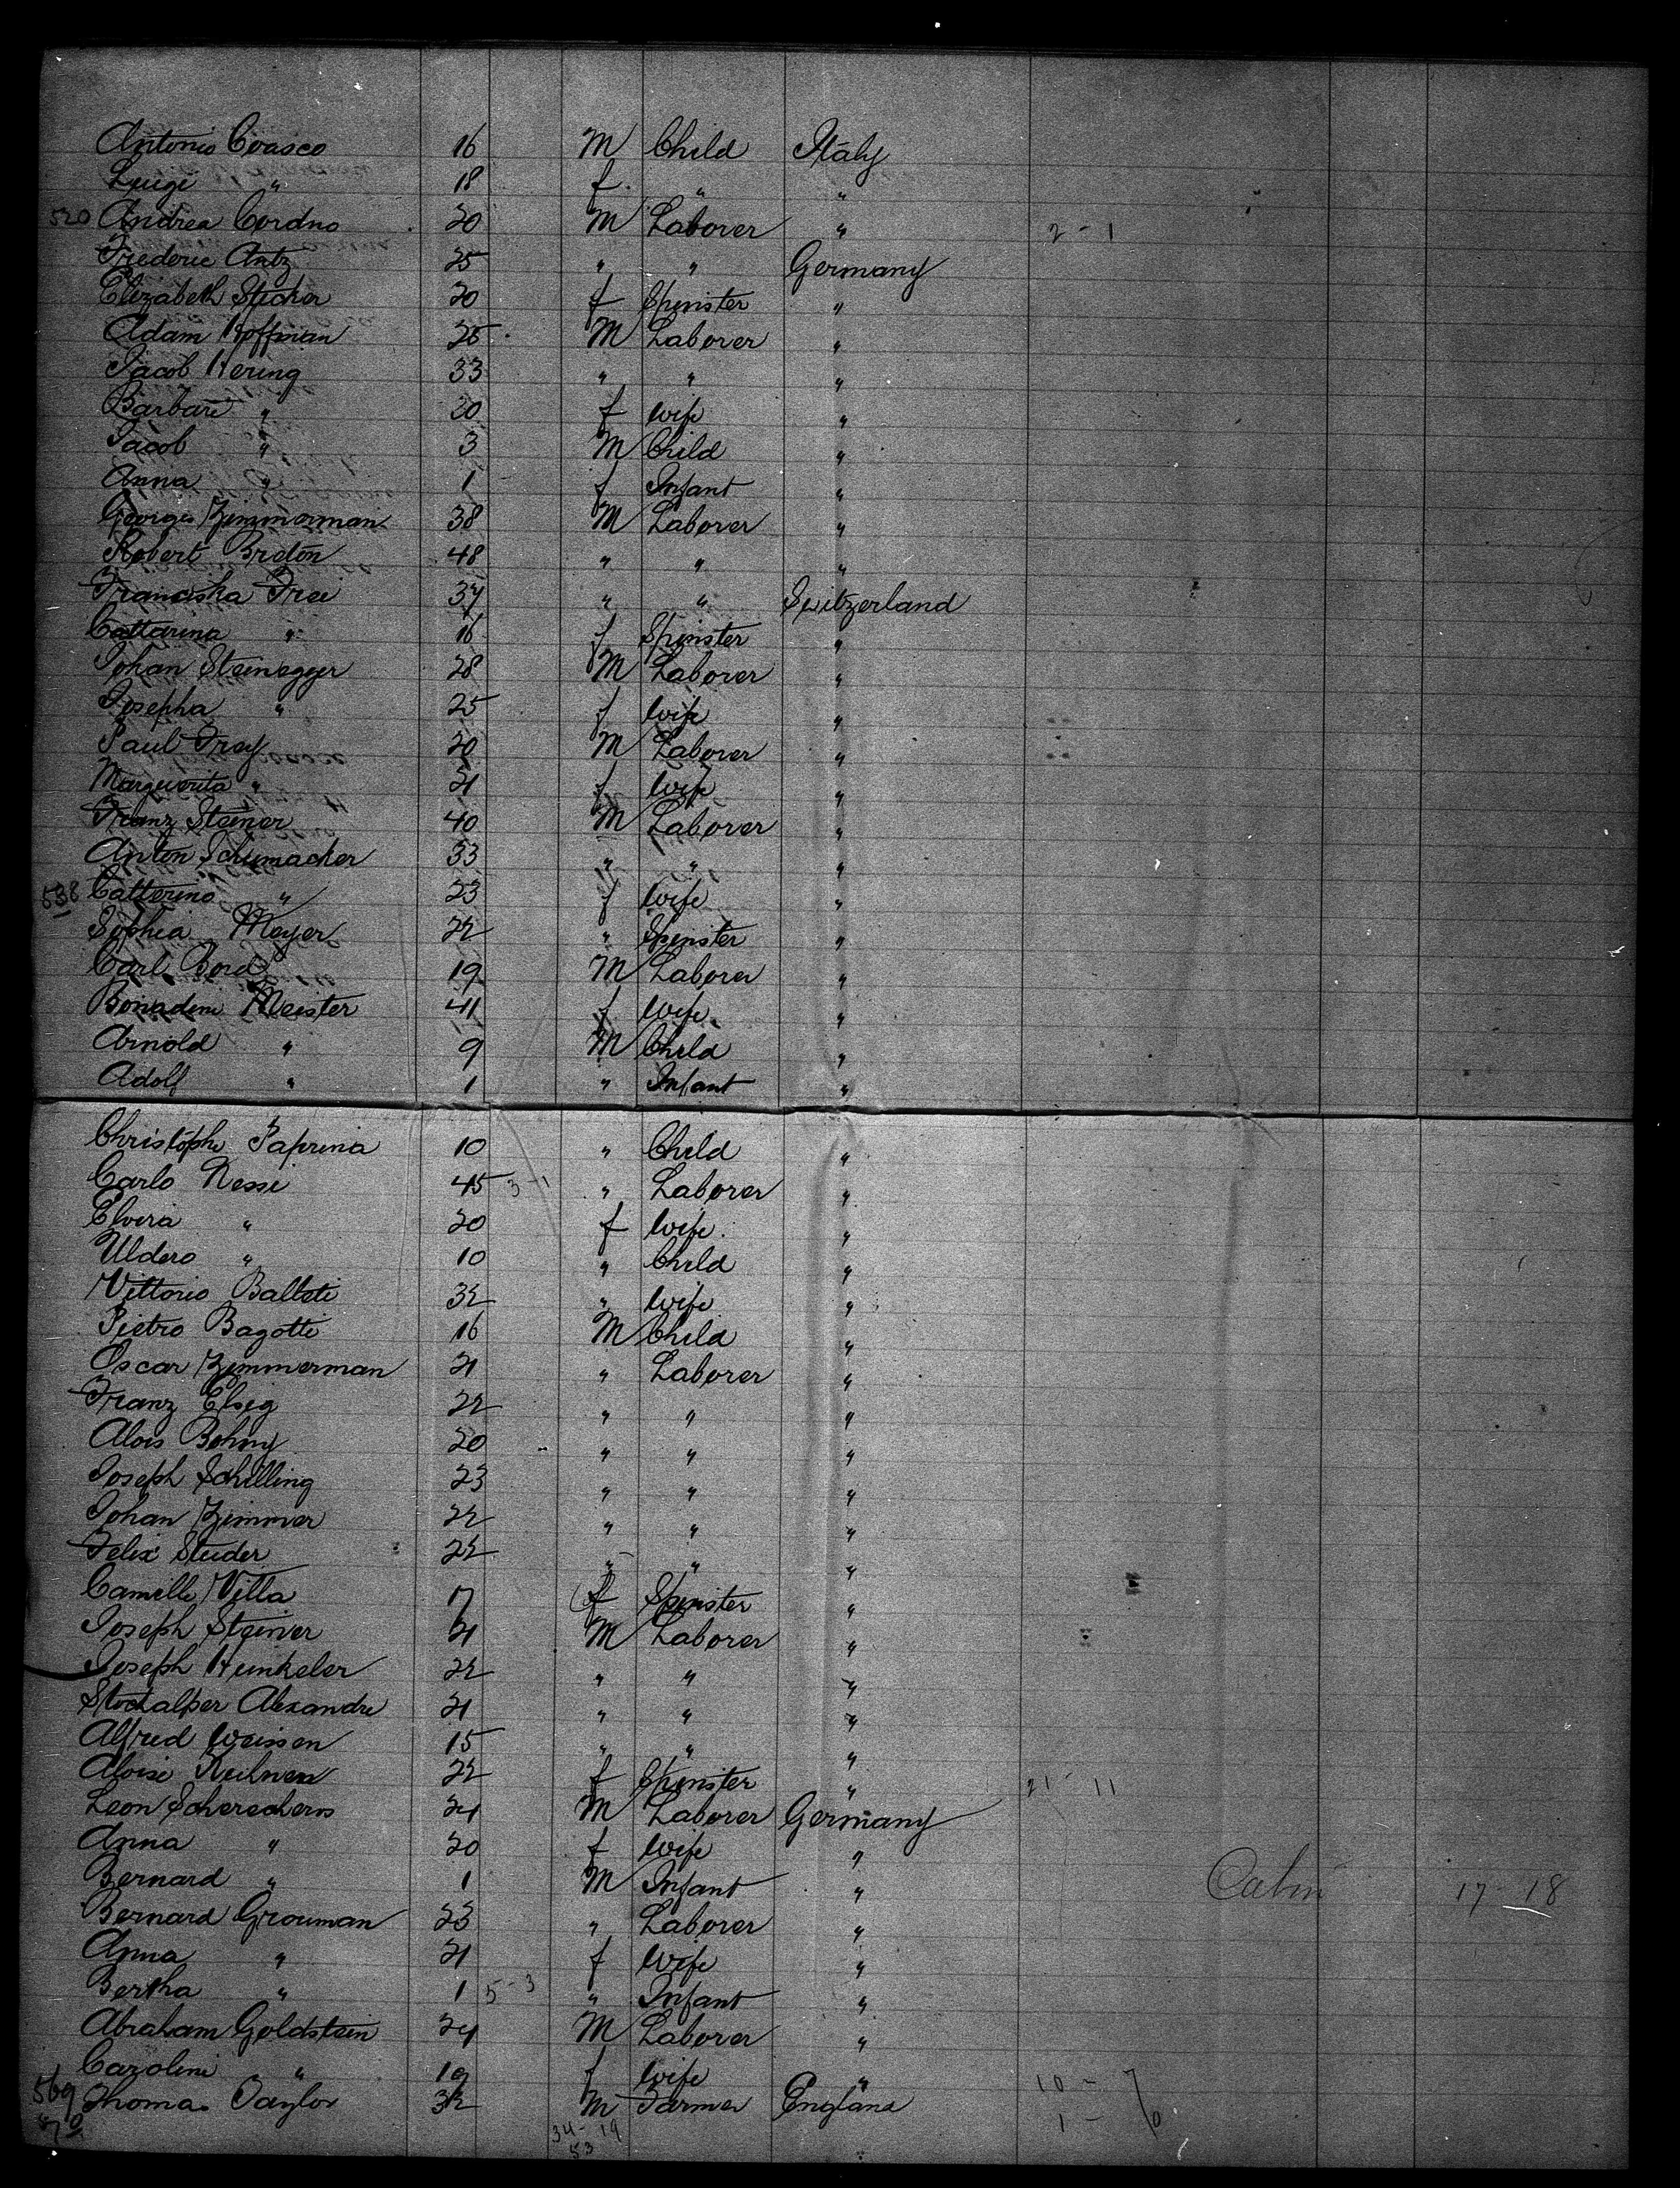 Antonio Coasco 16 M Child Italy
Luigi " 18 f " "
520 Andrea Cordno 20 M Laborer " 2 - 1
Frederic Antz 25 " " Germany
Elizabeth Stecher 20 f Spinster "
Adam Hoffman 25 M Laborer "
Jacob Hering 33 " " "
Barbare " 20 f Wife "
Jacob " 3 M Child "
Anna " 1 f Infant "
Georges Zimmerman 38 M Laborer "
Robert Breton 48 " " "
Franciska Frei 37 " " Switzerland
Cattarina " 16 f Spinster "
Johan Steinegger 28 M Laborer "
Josepha " 25 f Wife "
Paul Frey 20 M Laborer "
Marguerita " 21 f Wife "
Franz Steiner 40 M Laborer "
Anton Schumacher 33 " " "
538 Catterino " 23 f Wife "
Sophia Meyer 22 " Spinster "
Carl Bord 19 M Laborer "
Meister 41 f Wife "
Arnold " 9 M Child "
Adolf " 1 " Infant "
Christophe Paprina 10 " Child "
Carlo Nessi 45 3-1 " Laborer "
Elvira " 20 f Wife "
Uldero " 10 " Child "
Vittorio Balleti 32 " Wife "
Pietro Bagotti 16 M Child "
Oscar Zimmerman 21 " Laborer "
Franz Elsig 22 " " "
Alois Bohny 20 " " "
Joseph Schilling 23 " " "
Johan Zimmer 22 " " "
Felix Studer 22 " " "
Camille Villa 17 f Spinster "
Joseph Steiner 21 M Laborer "
Joseph Hunkeler 22 " " "
Stockalper Alexandre 21 " " "
Alfred Weissen 15 " " "
Aloise 22 f Spinster " 21 - 11
Leon Scherschens 24 M Laborer Germany
Anna " 20 f Wife "
Bernard " 1 M Infant " Cabin 17 - 18
Bernard Grouman 23 " Laborer "
Anna " 21 f Wife "
Bertha " 1 5-3 " Infant "
Abraham Goldstein 24 M Laborer "
Carolini " 19 f Wife " 10 - 7
569 Thomas Taylor 32 M Farmer England 1 - 0
570 34-19
53